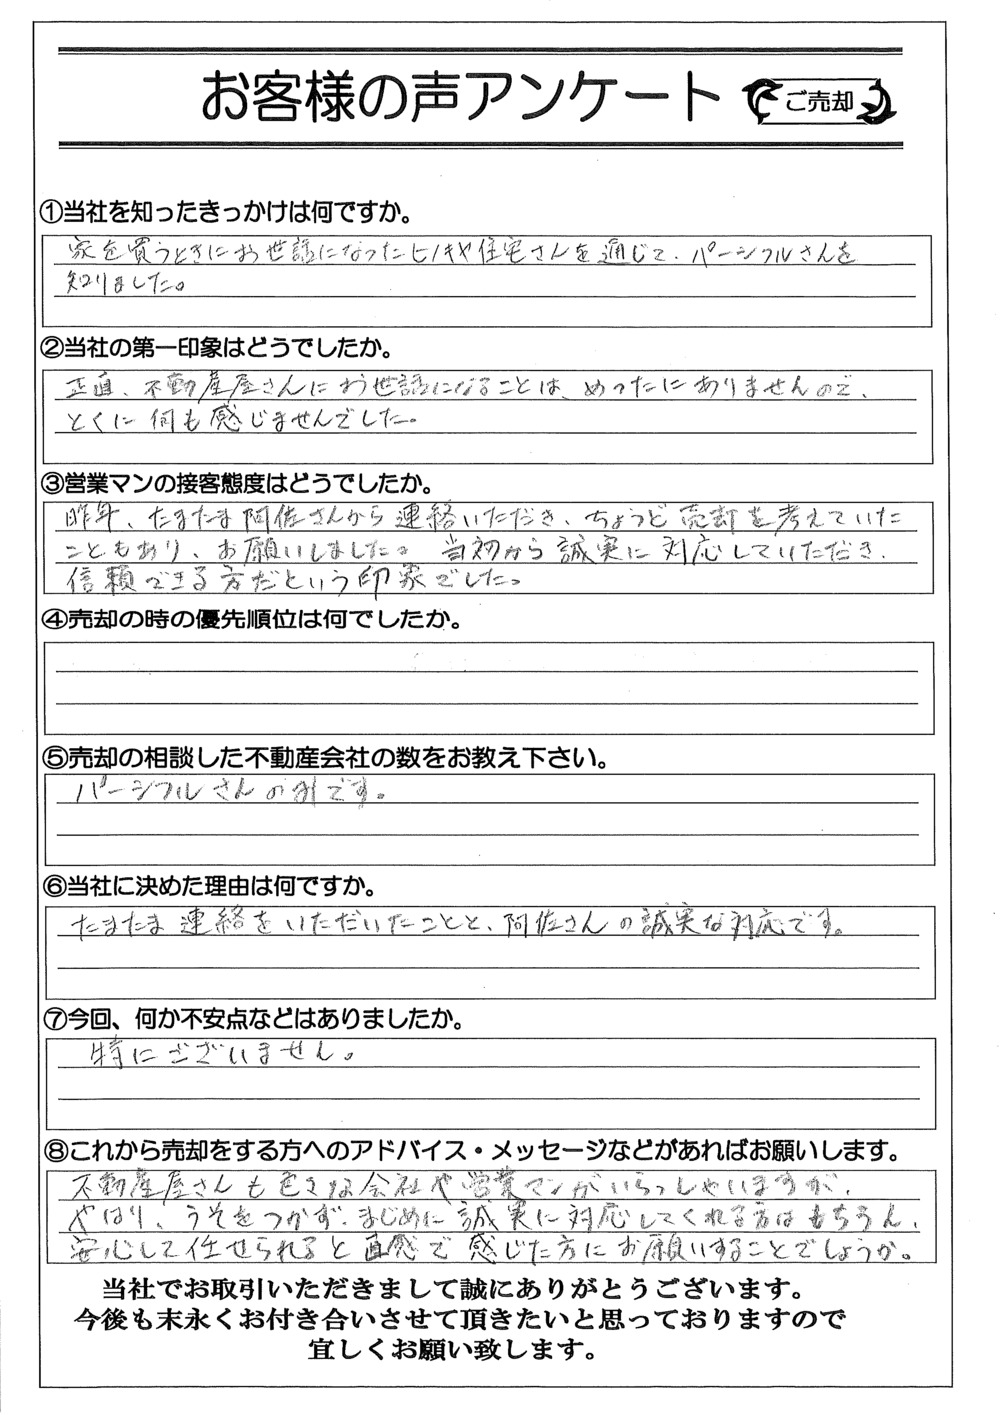 お客様の声アンケート ご売却
①当社を知ったきっかけは何ですか。
家を買うときにお世話になったヒノキヤ住宅さんを通じて、パーシフルさんを
知りました。
②当社の第一印象はどうでしたか。
正直、不動産屋さんにお世話になることは、めったにありませんので、
とくに何も感じませんでした。
③営業マンの接客態度はどうでしたか。
昨年、たまたま阿佐さんから連絡いただき、ちょうど売却を考えていた
こともあり、お願いしました。当初から誠実に対応していただき、
信頼できる方だという印象でした。
④売却の時の優先順位は何でしたか。
⑤売却の相談した不動産会社の数をお教え下さい。
パーシフルさんのみです。
⑥当社に決めた理由は何ですか。
たまたま連絡をいただいたことと、阿佐さんの誠実な対応です。
⑦今回、何か不安点などはありましたか。
特にございません。
⑧これから売却をする方へのアドバイス・メッセージなどがあればお願いします。
不動産屋さんも色々な会社や営業マンがいらっしゃいますが、
やはり、うそをつかず、まじめに誠実に対応してくれる方はもちろん、
安心して任せられると直感で感じた方にお願いすることでしょうか。
当社でお取引いただきまして誠にありがとうございます。
今後も末永くお付き合いさせて頂きたいと思っておりますので
宜しくお願い致します。